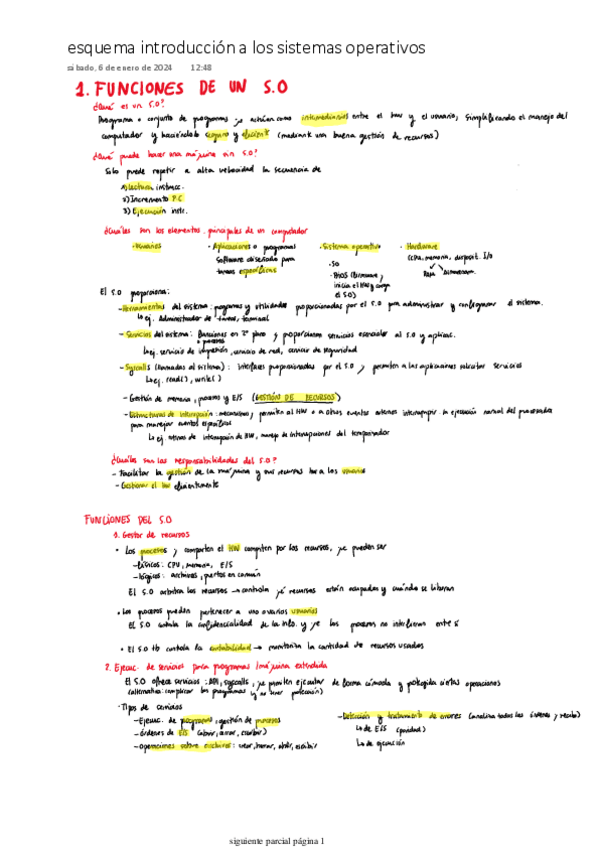 esquema introducción a los sistemas operativos
sábado, 6 de enero de 2024 12:48
1. FUNCIONES DE UN S.O
¿Qué es un S.O?
Programa o conjunto de programas que actúan como intermediarios entre el HW y el usuario, simplificando el manejo del
computador y haciéndolo seguro y eficiente (mediante una buena gestión de recursos)
¿Qué puede hacer una máquina sin S.O?
Solo puede repetir a alta velocidad la secuencia de
1) Lectura instrucc.
2) Incremento PC
3) Ejecución instr.
¿Cuáles son los elementos principales de un computador
· Usuarios · Aplicaciones o programas · Sistema operativo · Hardware
software diseñado para · SO (CPU, memoria, disposit. I/O
tareas específicas · BIOS (firmware, RAM
inicia el HW y carga
el SO)
El S.O proporciona:
- Herramientas del sistema: programas y utilidades proporcionadas por el S.O para administrar y configurar el sistema.
↳ ej. Administrador de tareas, terminal
- Servicios del sistema: funciones en 2º plano y proporcionan servicios esenciales al S.O y aplicac.
o procesos
↳ ej. servicio de impresión, servicio de red, servicio de seguridad
- Syscalls (llamadas al sistema): interfaces proporcionadas por el S.O y permiten a las aplicaciones solicitar servicios
↳ ej. read(), write()
- Gestión de memoria, procesos y E/S (GESTIÓN DE RECURSOS)
- Estructuras de interrupción: mecanismos y permiten al HW o a otros eventos externos interrumpir la ejecución normal del procesador
para manejar eventos específicos
↳ ej. rutinas de interrupción de HW, manejo de interrupciones del temporizador
¿Cuáles son las responsabilidades del S.O?
- Facilitar la gestión de la máquina y sus recursos a los usuarios
- Gestionar el HW eficientemente
FUNCIONES DEL S.O
1. Gestor de recursos
· Los procesos y comparten el HW compiten por los recursos, que pueden ser
- físicos: CPU, memoria, E/S
- lógicos: archivos, puertos en común
El S.O arbitra los recursos → controla qué recursos están ocupados y cuándo se liberan
· Los procesos pueden pertenecer a uno o varios usuarios
El S.O controla la confidencialidad de la info. y que los procesos no interfieran entre sí
· El S.O tb controla la contabilidad → monitoriza la cantidad de recursos usados
2. Ejecuc. de servicios para programas / máquina extendida
El S.O ofrece servicios: API, syscalls, que permiten ejecutar de forma cómoda y protegida ciertas operaciones
(alternativa: complicar los programas y no tener protección)
· Tipos de servicios
- Ejecuc. de programas, gestión de procesos
- órdenes de E/S (abrir, cerrar, escribir)
- operaciones sobre archivos: crear, borrar, abrir, escribir
- Detección y tratamiento de errores (analiza todas las órdenes que recibe)
↳ de E/S (paridad)
↳ de ejecución
siguiente parcial página 1